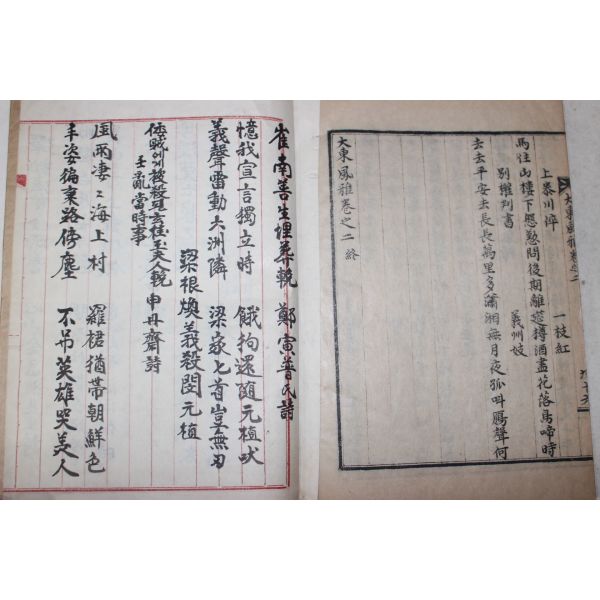 大東風雅卷之二
上泰川倅 一枝紅
馬住山樓下慇懃問後期離筵樽酒盡花落馬啼時
別權判書 義州妓
去去平安去長長萬里多瀟湘無月夜孤叫鴈聲何
大東風雅卷之二 終
崔南善生埋葬輓 鄭寅普氏詩
憶我宣言獨立時 餓狗還随元植吠
義聲雷動大洲隣 梁家匕首豈無刃
梁根煥義殺閔元植
倭戰 被殺 夫人輓 申丹齋詩
壬亂當時事
風雨凄々海上村 羅裙猶帶朝鮮色
丰姿徧棄路傍塵 不吊英雄哭美人